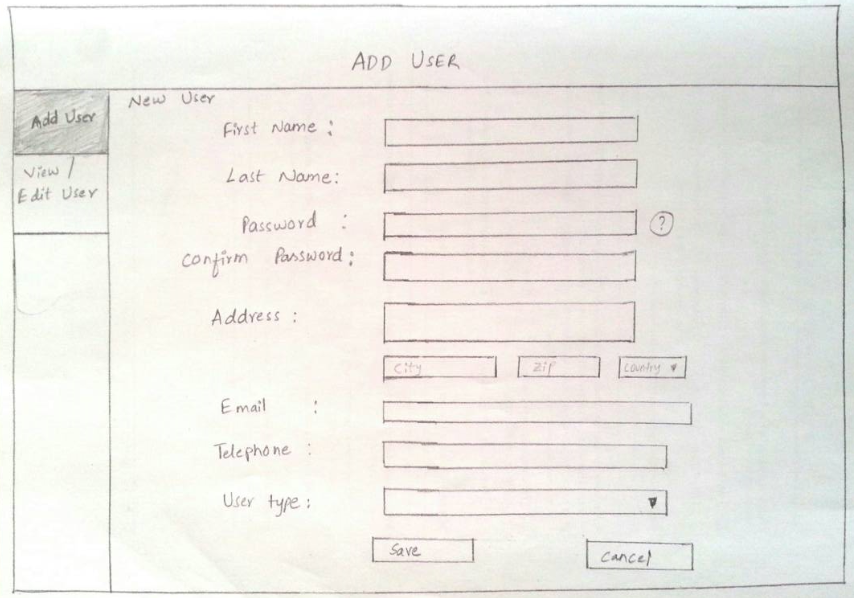 ADD USER
Add User
View /
Edit User
New User
First Name :
Last Name:
Password :
?
Confirm Password:
Address :
City
Zip
Country
Email :
Telephone :
User type:
Save
Cancel